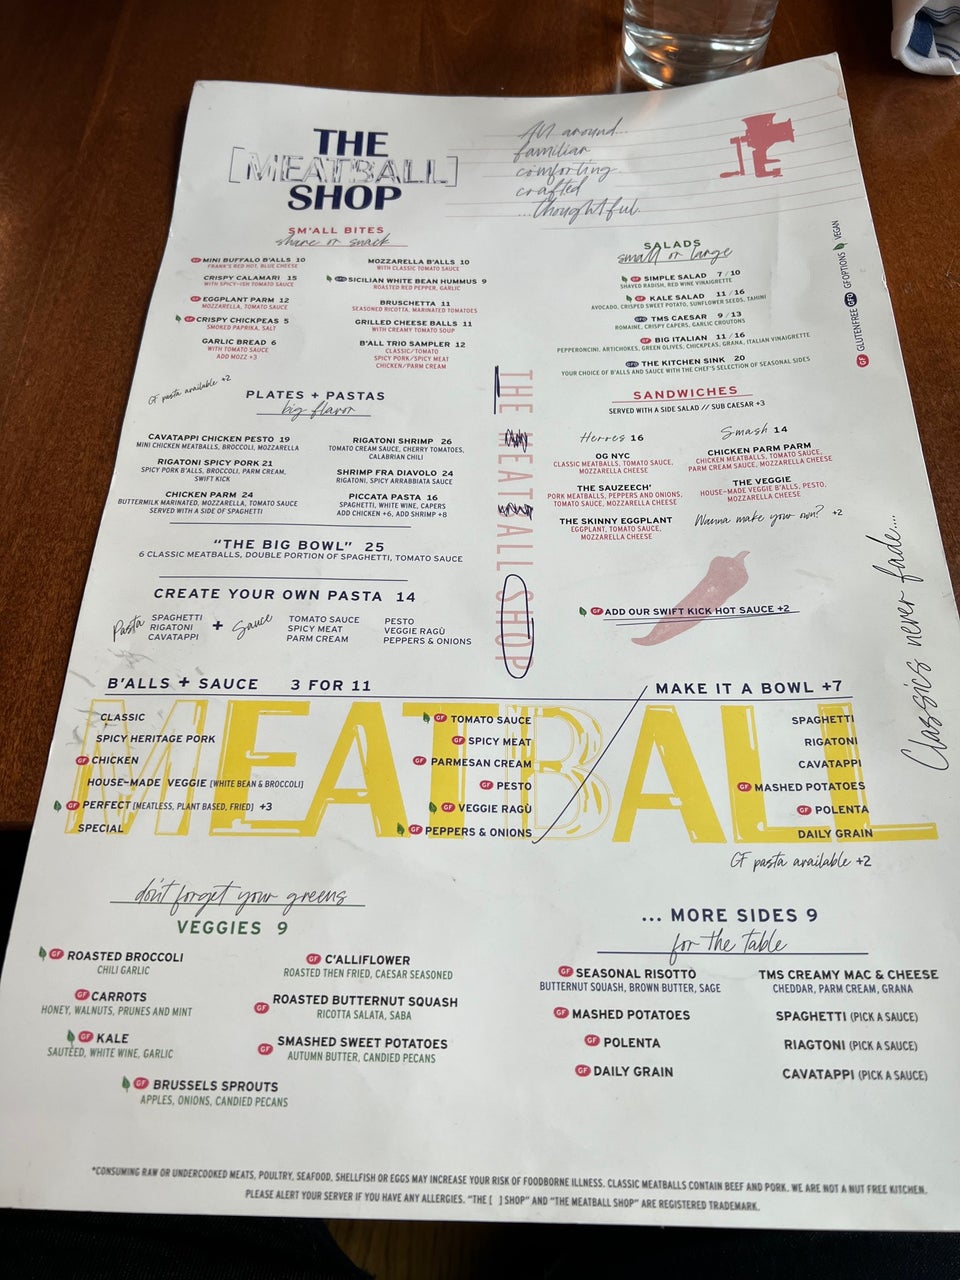 THE
[MEATBALL]
SHOP
All around...
familiar
comforting
crafted
...thoughtful.
SM'ALL BITES
share or snack
GF MINI BUFFALO B'ALLS 10
FRANK'S RED HOT, BLUE CHEESE
CRISPY CALAMARI 15
WITH SPICY-ISH TOMATO SAUCE
GF EGGPLANT PARM 12
MOZZARELLA, TOMATO SAUCE
GF CRISPY CHICKPEAS 5
SMOKED PAPRIKA, SALT
GARLIC BREAD 6
WITH TOMATO SAUCE
ADD MOZZ +3
MOZZARELLA B'ALLS 10
WITH CLASSIC TOMATO SAUCE
GFO SICILIAN WHITE BEAN HUMMUS 9
ROASTED RED PEPPER, GARLIC
BRUSCHETTA 11
SEASONED RICOTTA, MARINATED TOMATOES
GRILLED CHEESE BALLS 11
WITH CREAMY TOMATO SOUP
B'ALL TRIO SAMPLER 12
CLASSIC/TOMATO
SPICY PORK/SPICY MEAT
CHICKEN/PARM CREAM
SALADS
small or large
GF SIMPLE SALAD 7/10
SHAVED RADISH, RED WINE VINAIGRETTE
GF KALE SALAD 11/16
AVOCADO, CRISPED SWEET POTATO, SUNFLOWER SEEDS, TAHINI
GFO TMS CAESAR 9/13
ROMAINE, CRISPY CAPERS, GARLIC CROUTONS
GF BIG ITALIAN 11/16
PEPPERONCINI, ARTICHOKES, GREEN OLIVES, CHICKPEAS, GRANA, ITALIAN VINAIGRETTE
GFO THE KITCHEN SINK 20
YOUR CHOICE OF B'ALLS AND SAUCE WITH THE CHEF'S SELECTION OF SEASONAL SIDES
GF GLUTENFREE GFO GF OPTIONS VEGAN
GF pasta available +2
PLATES + PASTAS
big flavor
CAVATAPPI CHICKEN PESTO 19
MINI CHICKEN MEATBALLS, BROCCOLI, MOZZARELLA
RIGATONI SPICY PORK 21
SPICY PORK B'ALLS, BROCCOLI, PARM CREAM,
SWIFT KICK
CHICKEN PARM 24
BUTTERMILK MARINATED, MOZZARELLA, TOMATO SAUCE
SERVED WITH A SIDE OF SPAGHETTI
RIGATONI SHRIMP 26
TOMATO CREAM SAUCE, CHERRY TOMATOES,
CALABRIAN CHILI
SHRIMP FRA DIAVOLO 24
RIGATONI, SPICY ARRABBIATA SAUCE
PICCATA PASTA 16
SPAGHETTI, WHITE WINE, CAPERS
ADD CHICKEN +6, ADD SHRIMP +8
"THE BIG BOWL" 25
6 CLASSIC MEATBALLS, DOUBLE PORTION OF SPAGHETTI, TOMATO SAUCE
CREATE YOUR OWN PASTA 14
Pasta
SPAGHETTI
RIGATONI
CAVATAPPI
+
Sauce
TOMATO SAUCE
SPICY MEAT
PARM CREAM
PESTO
VEGGIE RAGÙ
PEPPERS & ONIONS
THE MEATBALL SHOP
SANDWICHES
SERVED WITH A SIDE SALAD // SUB CAESAR +3
Heroes 16
OG NYC
CLASSIC MEATBALLS, TOMATO SAUCE,
MOZZARELLA CHEESE
THE SAUZEECH'
PORK MEATBALLS, PEPPERS AND ONIONS,
TOMATO SAUCE, MOZZARELLA CHEESE
THE SKINNY EGGPLANT
EGGPLANT, TOMATO SAUCE,
MOZZARELLA CHEESE
Smash 14
CHICKEN PARM PARM
CHICKEN MEATBALLS, TOMATO SAUCE,
PARM CREAM SAUCE, MOZZARELLA CHEESE
THE VEGGIE
HOUSE-MADE VEGGIE B'ALLS, PESTO,
MOZZARELLA CHEESE
Wanna make your own? +2
GF ADD OUR SWIFT KICK HOT SAUCE +2
Classics never fade....
B'ALLS + SAUCE 3 FOR 11
MAKE IT A BOWL +7
MEATBALL
CLASSIC
SPICY HERITAGE PORK
GF CHICKEN
HOUSE-MADE VEGGIE [WHITE BEAN & BROCCOLI]
GF PERFECT [MEATLESS, PLANT BASED, FRIED] +3
SPECIAL
GF TOMATO SAUCE
GF SPICY MEAT
GF PARMESAN CREAM
GF PESTO
GF VEGGIE RAGÙ
GF PEPPERS & ONIONS
SPAGHETTI
RIGATONI
CAVATAPPI
GF MASHED POTATOES
GF POLENTA
DAILY GRAIN
GF pasta available +2
don't forget your greens
VEGGIES 9
GF ROASTED BROCCOLI
CHILI GARLIC
GF CARROTS
HONEY, WALNUTS, PRUNES AND MINT
GF KALE
SAUTÉED, WHITE WINE, GARLIC
GF BRUSSELS SPROUTS
APPLES, ONIONS, CANDIED PECANS
GF C'ALLIFLOWER
ROASTED THEN FRIED, CAESAR SEASONED
GF ROASTED BUTTERNUT SQUASH
RICOTTA SALATA, SABA
GF SMASHED SWEET POTATOES
AUTUMN BUTTER, CANDIED PECANS
... MORE SIDES 9
for the table
GF SEASONAL RISOTTO
BUTTERNUT SQUASH, BROWN BUTTER, SAGE
GF MASHED POTATOES
GF POLENTA
GF DAILY GRAIN
TMS CREAMY MAC & CHEESE
CHEDDAR, PARM CREAM, GRANA
SPAGHETTI (PICK A SAUCE)
RIAGTONI (PICK A SAUCE)
CAVATAPPI (PICK A SAUCE)
*CONSUMING RAW OR UNDERCOOKED MEATS, POULTRY, SEAFOOD, SHELLFISH OR EGGS MAY INCREASE YOUR RISK OF FOODBORNE ILLNESS. CLASSIC MEATBALLS CONTAIN BEEF AND PORK. WE ARE NOT A NUT FREE KITCHEN.
PLEASE ALERT YOUR SERVER IF YOU HAVE ANY ALLERGIES. "THE [ ] SHOP" AND "THE MEATBALL SHOP" ARE REGISTERED TRADEMARK.